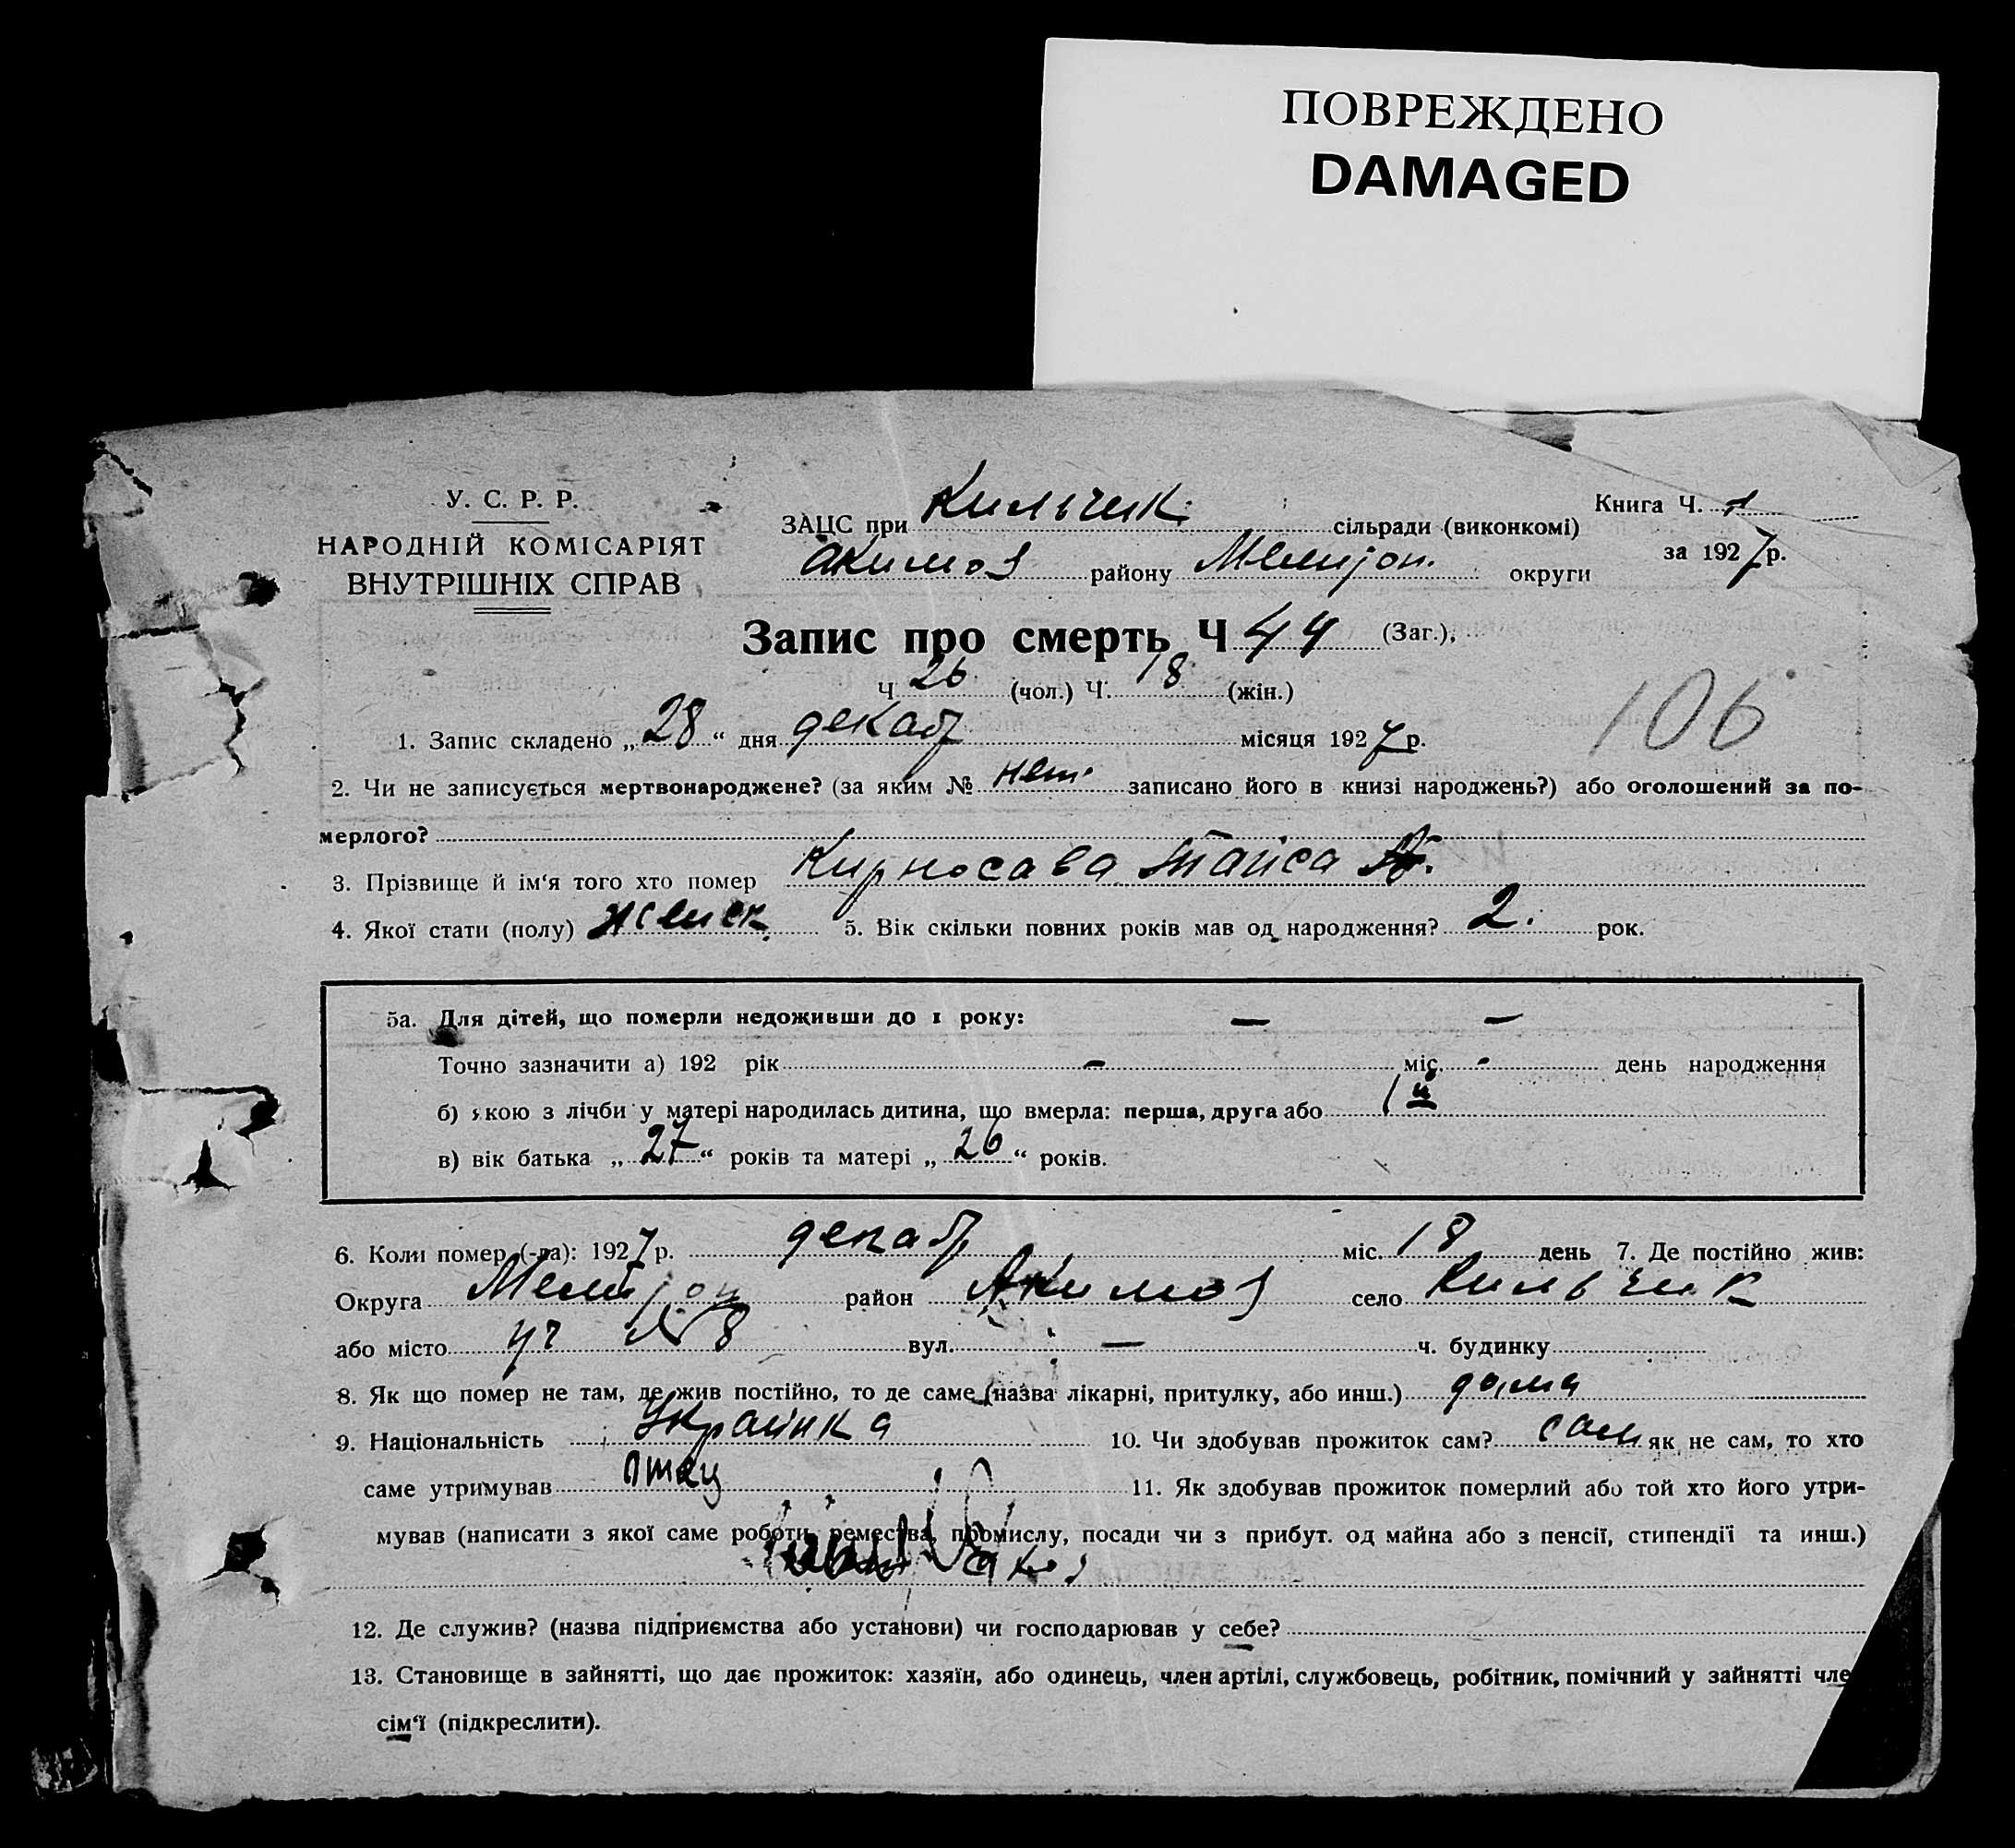 ПОВРЕЖДЕНО
DAMAGED
У. С. Р. Р.
НАРОДНІЙ КОМІСАРІЯТ
ВНУТРІШНІХ СПРАВ
ЗАЦС при Кильчик. сільради (виконкомі)
Акимов району Мелитоп. округи
Книга Ч. 1
за 1927 р.
Запис про смерть Ч 44 (Заг.),
Ч 26 (чол.) Ч. 18 (жін.)
106
1. Запис складено „28“ дня декабр місяця 1927 р.
2. Чи не записується мертвонароджене? (за яким № нет. записано його в книзі народжень?) або оголошений за по-
мерлого?
3. Прізвище й ім'я того хто помер Кирносава Таиса
4. Якої стати (полу) женск. 5. Вік скільки повних років мав од народження? 2. рок.
5а. Для дітей, що померли недоживши до 1 року: — —
Точно зазначити а) 192 рік - міс. - день народження
б) якою з лічби у матері народилась дитина, що вмерла: перша, друга або 1й
в) вік батька „27“ років та матері „26“ років.
6. Коли помер (-ла): 1927 р. декабр міс. 18 день 7. Де постійно жив:
Округа Мелитоп район Акимов село Кильчик
або місто уч № 8 вул. — ч. будинку
8. Як що помер не там, де жив постійно, то де саме (назва лікарні, притулку, або инш.) дома
9. Національність Украинка 10. Чи здобував прожиток сам? як не сам, то хто
саме утримував отец 11. Як здобував прожиток померлий або той хто його утри-
мував (написати з якої саме роботи, ремества, промислу, посади чи з прибут. од майна або з пенсії, стипендії та инш.)
12. Де служив? (назва підприємства або установи) чи господарював у себе?
13. Становище в зайнятті, що дає прожиток: хазяїн, або одинець, член артілі, службовець, робітник, помічний у зайнятті чле
сім'ї (підкреслити).